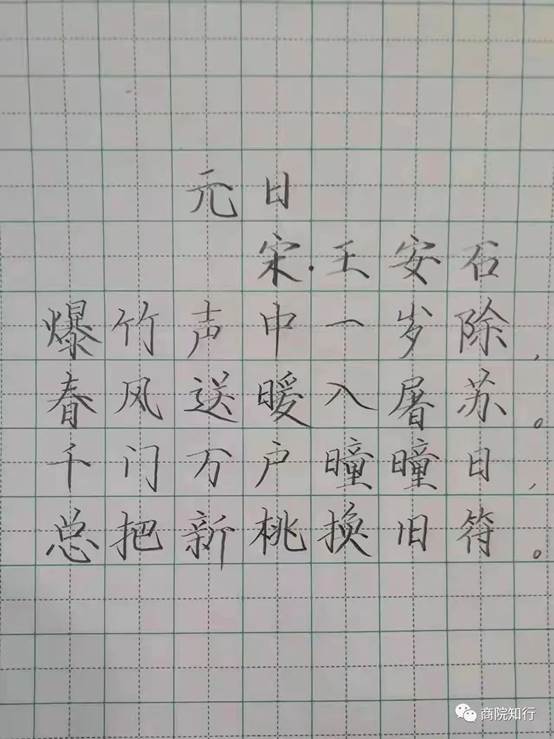 元日
宋·王安石
爆竹声中一岁除，
春风送暖入屠苏。
千门万户曈曈日，
总把新桃换旧符。
商院知行